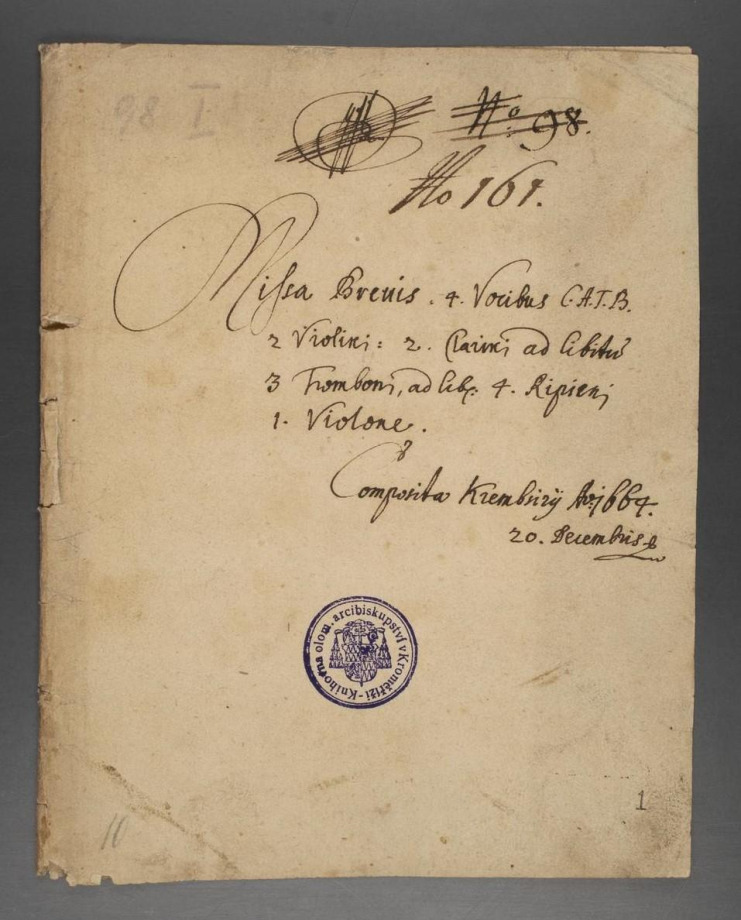 98 I
No: 98.
No 161.
Missa Brevis. 4. Vocibus C.A.T.B.
2 Violini: 2. Clarini ad libitũ
3 Tromboni, ad lib: 4. Ripieni
1. Violone.
Composita Krembsirij Ao: 1664.
20. Decembris
Knihovna olom. arcibiskupství v Kroměříži
1
10